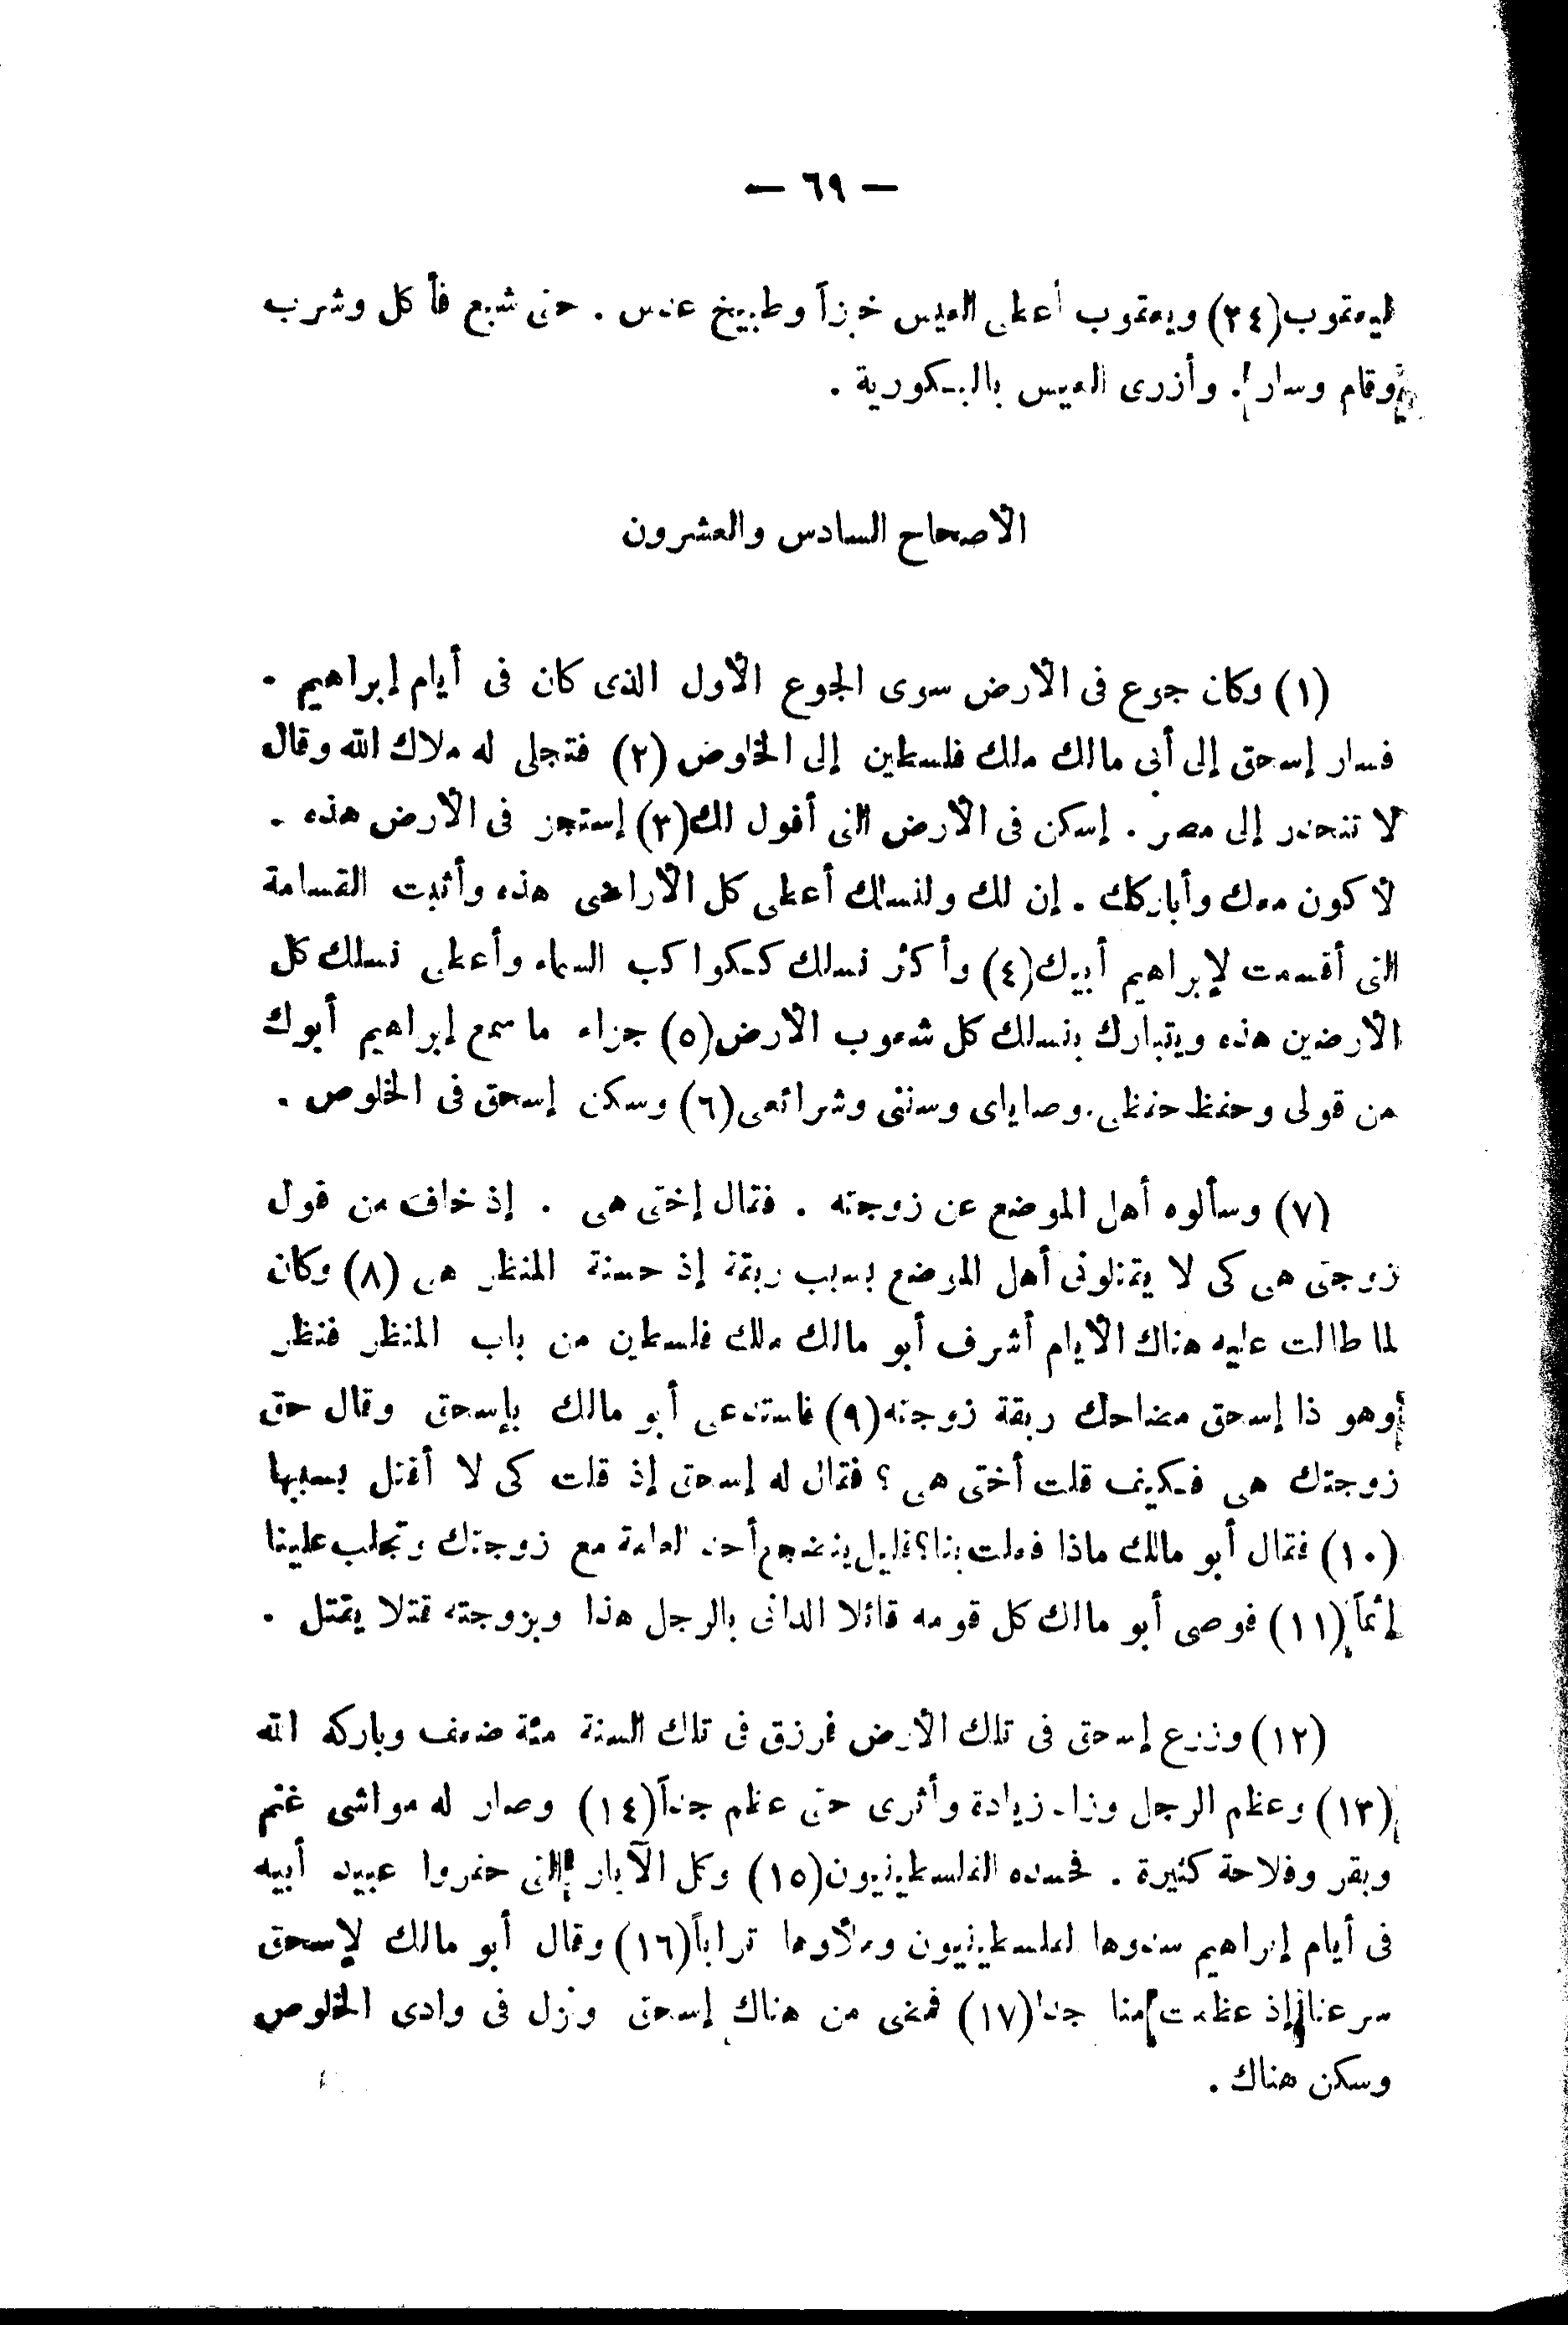 — ٦٩ —
ليعقوب (٣٤) ويعقوب أعطى العيس خبزاً وطبيخ عدس . حتى شبع فأكل وشرب
وقام وسار . وأزرى العيس بالبكورية .
الاصحاح السادس والعشرون
(١) وكان جوع فى الأرض سوى الجوع الأول الذى كان فى أيام إبراهيم .
فسار إسحق إلى أبى مالك ملك فلسطين إلى الخلوص (٢) فتجلى له ملاك الله وقال
لا تنحدر إلى مصر . إسكن فى الأرض التى أقول لك (٣) إستجر فى الأرض هذه .
لأكون معك وأباركك . إن لك ولنسلك أعطى كل الأراضى هذه وأثبت القسامة
التى أقسمت لإبراهيم أبيك (٤) وأكثر نسلك ككواكب السماء وأعطى نسلك كل
الأرضين هذه ويتبارك بنسلك كل شعوب الأرض (٥) جزاء ما سمع إبراهيم أبوك
من قولى وحفظ حفظى . وصاياى وسننى وشرائعى (٦) وسكن إسحق فى الخلوص .
(٧) وسألوه أهل الموضع عن زوجته . فقال إختى هى . إذ خاف من قول
زوجتى هى كى لا يقتلونى أهل الموضع بسبب ربقة إذ حسنة المنظر هى (٨) وكان
لما طالت عليه هناك الأيام أشرف أبو مالك ملك فلسطين من باب المنظر فنظر
وهو ذا إسحق مضاحك ربقة زوجته (٩) فاستدعى أبو مالك بإسحق وقال حق
زوجتك هى فكيف قلت أختى هى ؟ فقال له إسحق إذ قلت كى لا أقتل بسببها
(١٠) فقال أبو مالك ماذا فعلت بنا ؟ قليل ينضجع أحد العامة مع زوجتك وتجلب علينا
إثماً (١١) فوصى أبو مالك كل قومه قائلا الدانى بالرجل هذا وبزوجته قتلا يقتل .
(١٢) وزرع إسحق فى تلك الأرض فرزق فى تلك السنة مئة ضعف وباركه الله
(١٣) وعظم الرجل وزاد زيادة وأثرى حتى عظم جداً (١٤) وصار له مواشى غنم
وبقر وفلاحة كثيرة . فحسده الفلسطينيون (١٥) وكل الآبار التى حفروا عبيد أبيه
فى أيام إبراهيم سدوها الفلسطينيون وملأوها تراباً (١٦) وقال أبو مالك لإسحق
سر عنا إذ عظمت منا جدا (١٧) فمضى من هناك إسحق ونزل فى وادى الخلوص
وسكن هناك .